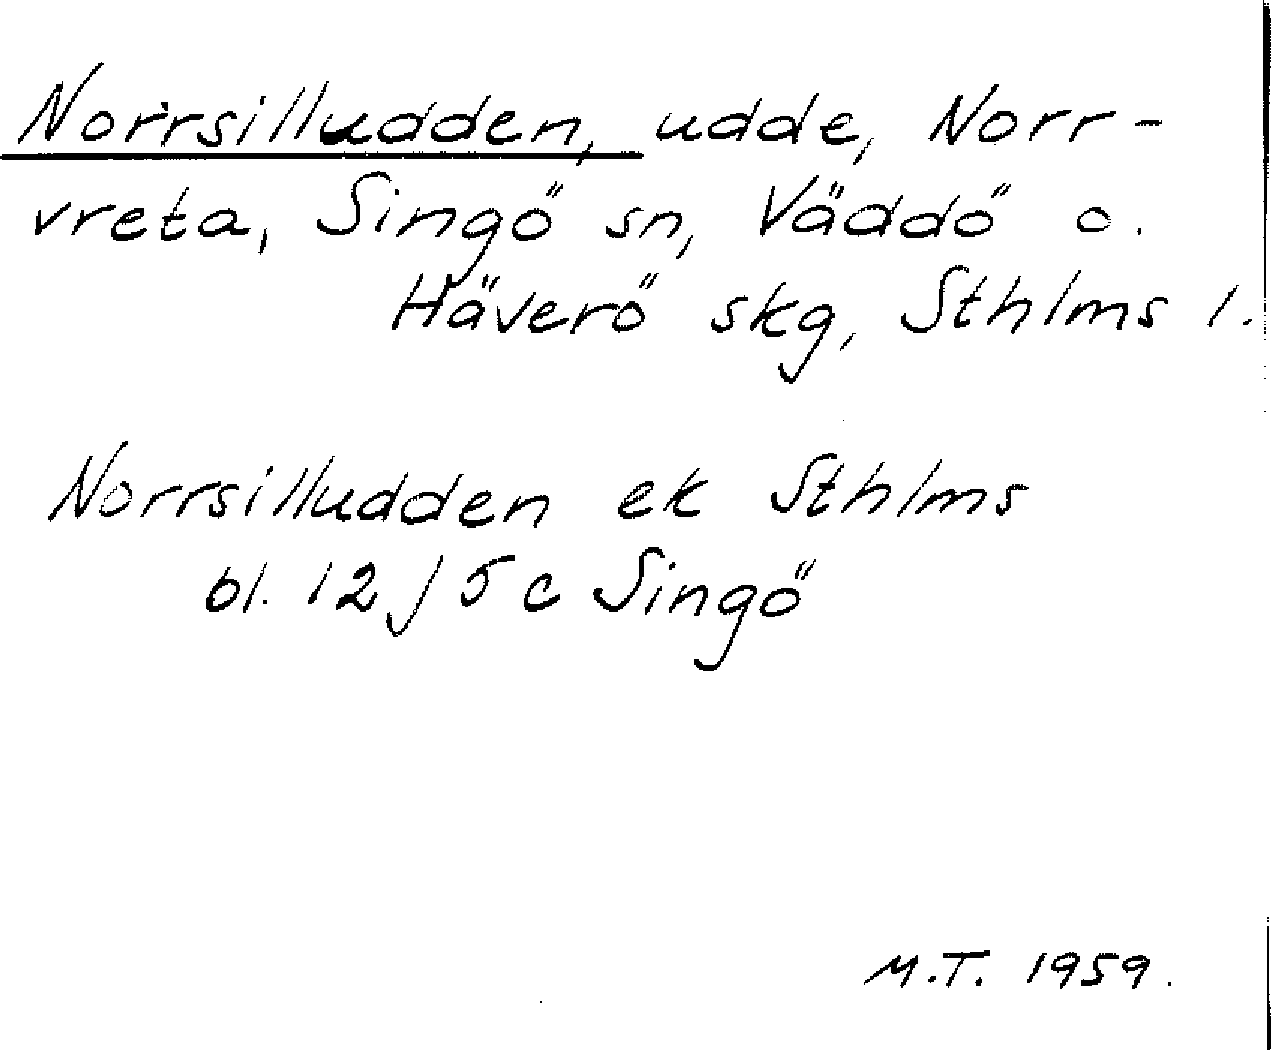 Norrsilludden, udde, Norr-
vreta, Singö sn, Väddö o.
Häverö skg, Sthlms l.
Norrsilludden ek Sthlms
bl. 12 J 5 c Singö
M.T. 1959.